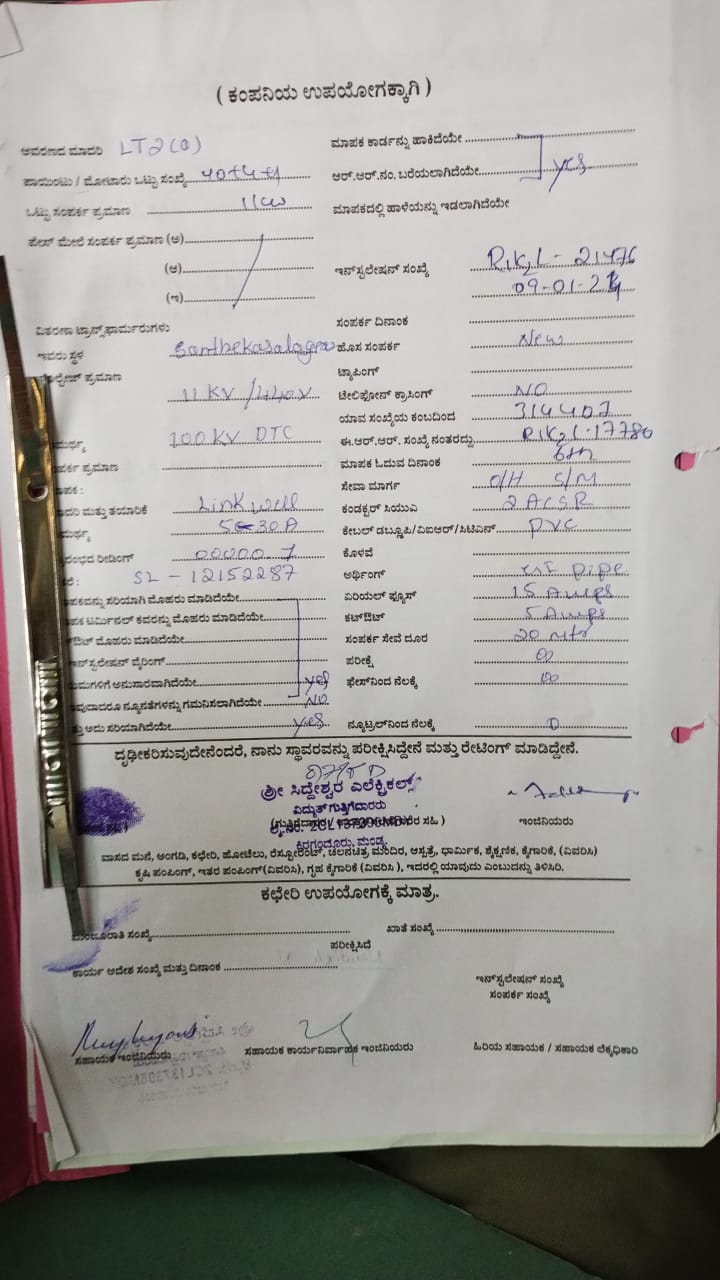 ( ಕಂಪನಿಯ ಉಪಯೋಗಕ್ಕಾಗಿ )
ಆವರಣದ ಮಾದರಿ LT2(a)
ಮಾಪಕ ಕಾರ್ಡನ್ನು ಹಾಕಿದೆಯೇ
ಪಾಯಿಂಟು / ಮೋಟಾರು ಒಟ್ಟು ಸಂಖ್ಯೆ
ಆರ್.ಆರ್.ನಂ. ಬರೆಯಲಾಗಿದೆಯೇ yes
ಒಟ್ಟು ಸಂಪರ್ಕ ಪ್ರಮಾಣ
ಮಾಪಕದಲ್ಲಿ ಹಾಳೆಯನ್ನು ಇಡಲಾಗಿದೆಯೇ
ಫೇಸ್ ಮೇಲೆ ಸಂಪರ್ಕ ಪ್ರಮಾಣ (ಅ)
(ಆ)
ಇನ್‌ಸ್ಟಲೇಷನ್ ಸಂಖ್ಯೆ 21476
(ಇ)
09-01-24
ವಿತರಣಾ ಟ್ರಾನ್ಸ್‌ಫಾರ್ಮರುಗಳು
ಸಂಪರ್ಕ ದಿನಾಂಕ
ಇದರು ಸ್ಥಳ
ಹೊಸ ಸಂಪರ್ಕ New
ಪ್ರಮಾಣ 11KV /440V
ಟ್ಯಾಪಿಂಗ್
ಟೆಲಿಫೋನ್ ಕ್ರಾಸಿಂಗ್ NO
ಯಾವ ಸಂಖ್ಯೆಯ ಕಂಬದಿಂದ 314407
100KV DTC
ಈ.ಆರ್.ಆರ್. ಸಂಖ್ಯೆ ನಂತರದ್ದು 17780
ಪ್ರಮಾಣ
ಮಾಪಕ ಓದುವ ದಿನಾಂಕ 6th
ಸೇವಾ ಮಾರ್ಗ O/H S/M
ಮತ್ತು ತಯಾರಿಕೆ Linkwell
ಕಂಡಕ್ಟರ್ ಸಿಯುಎ 2 ACSR
5-30A
ಕೇಬಲ್ ಡಬ್ಲೂಪಿ/ವಿಐಆರ್/ಸಿಟಿಎಸ್ PVC
ರೀಡಿಂಗ್ 00000.7
ಕೊಳವೆ
SL - 12152287
ಅರ್ಥಿಂಗ್ pipe
ಸರಿಯಾಗಿ ಮೊಹರು ಮಾಡಿದೆಯೇ
ಏರಿಯಲ್ ಫ್ಯೂಸ್ 15 Amps
ಟರ್ಮಿನಲ್ ಕವರನ್ನು ಮೊಹರು ಮಾಡಿದೆಯೇ
ಕಟ್‌ಔಟ್ 5 Amps
ಮೊಹರು ಮಾಡಿದೆಯೇ
ಸಂಪರ್ಕ ಸೇವೆ ದೂರ 20 mtr
ವೈರಿಂಗ್
ಪರೀಕ್ಷೆ ∞
ಅನುಸಾರವಾಗಿದೆಯೇ yes
ಫೇಸ್‌ನಿಂದ ನೆಲಕ್ಕೆ ∞
ನ್ಯೂನತೆಗಳನ್ನು ಗಮನಿಸಲಾಗಿದೆಯೇ NO
ಅದು ಸರಿಯಾಗಿದೆಯೇ Yes
ನ್ಯೂಟ್ರಲ್‌ನಿಂದ ನೆಲಕ್ಕೆ 0
ದೃಢೀಕರಿಸುವುದೇನೆಂದರೆ, ನಾನು ಸ್ಥಾವರವನ್ನು ಪರೀಕ್ಷಿಸಿದ್ದೇನೆ ಮತ್ತು ರೇಟಿಂಗ್ ಮಾಡಿದ್ದೇನೆ.
ಶ್ರೀ ಸಿದ್ದೇಶ್ವರ ಎಲೆಕ್ಟ್ರಿಕಲ್ಸ್
ವಿದ್ಯುತ್ ಗುತ್ತಿಗೆದಾರರು
ಇಂಜಿನಿಯರು
ಕಿರಗಂದೂರು, ಮಂಡ್ಯ.
ವಾಸದ ಮನೆ, ಅಂಗಡಿ, ಕಛೇರಿ, ಹೋಟೆಲು, ರೆಸ್ಟೋರೆಂಟ್, ಚಲನಚಿತ್ರ ಮಂದಿರ, ಆಸ್ಪತ್ರೆ, ಧಾರ್ಮಿಕ, ಶೈಕ್ಷಣಿಕ, ಕೈಗಾರಿಕೆ, (ವಿವರಿಸಿ)
ಕೃಷಿ ಪಂಪಿಂಗ್, ಇತರ ಪಂಪಿಂಗ್(ವಿವರಿಸಿ), ಗೃಹ ಕೈಗಾರಿಕೆ (ವಿವರಿಸಿ ), ಇದರಲ್ಲಿ ಯಾವುದು ಎಂಬುದನ್ನು ತಿಳಿಸಿರಿ.
ಕಛೇರಿ ಉಪಯೋಗಕ್ಕೆ ಮಾತ್ರ.
ಮಂಜೂರಾತಿ ಸಂಖ್ಯೆ
ಖಾತೆ ಸಂಖ್ಯೆ
ಪರೀಕ್ಷಿಸಿದೆ
ಕಾರ್ಯ ಆದೇಶ ಸಂಖ್ಯೆ ಮತ್ತು ದಿನಾಂಕ
ಇನ್‌ಸ್ಟಲೇಷನ್ ಸಂಖ್ಯೆ
ಸಂಪರ್ಕ ಸಂಖ್ಯೆ
ಸಹಾಯಕ ಇಂಜಿನಿಯರು
ಸಹಾಯಕ ಕಾರ್ಯನಿರ್ವಾಹಕ ಇಂಜಿನಿಯರು
ಹಿರಿಯ ಸಹಾಯಕ / ಸಹಾಯಕ ಲೆಕ್ಕಧಿಕಾರಿ